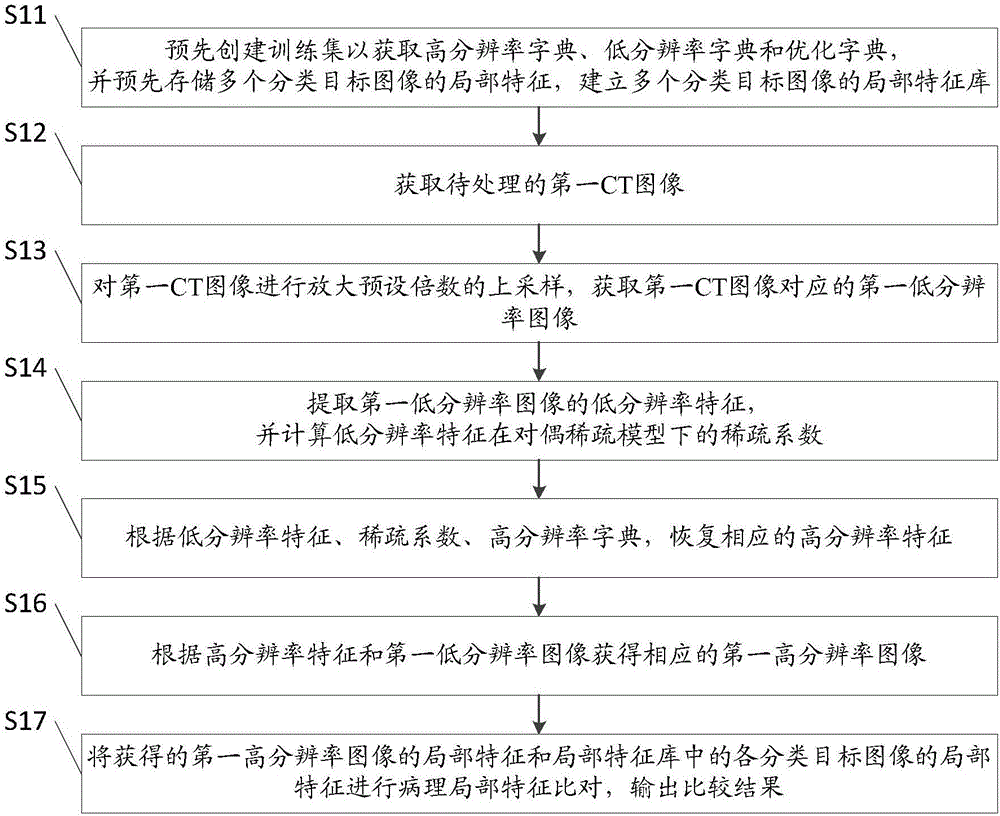 S11
预先创建训练集以获取高分辨率字典、低分辨率字典和优化字典，
并预先存储多个分类目标图像的局部特征，建立多个分类目标图像的局部特征库
S12
获取待处理的第一CT图像
S13
对第一CT图像进行放大预设倍数的上采样，获取第一CT图像对应的第一低分辨
率图像
S14
提取第一低分辨率图像的低分辨率特征，
并计算低分辨率特征在对偶稀疏模型下的稀疏系数
S15
根据低分辨率特征、稀疏系数、高分辨率字典，恢复相应的高分辨率特征
S16
根据高分辨率特征和第一低分辨率图像获得相应的第一高分辨率图像
S17
将获得的第一高分辨率图像的局部特征和局部特征库中的各分类目标图像的局部
特征进行病理局部特征比对，输出比较结果